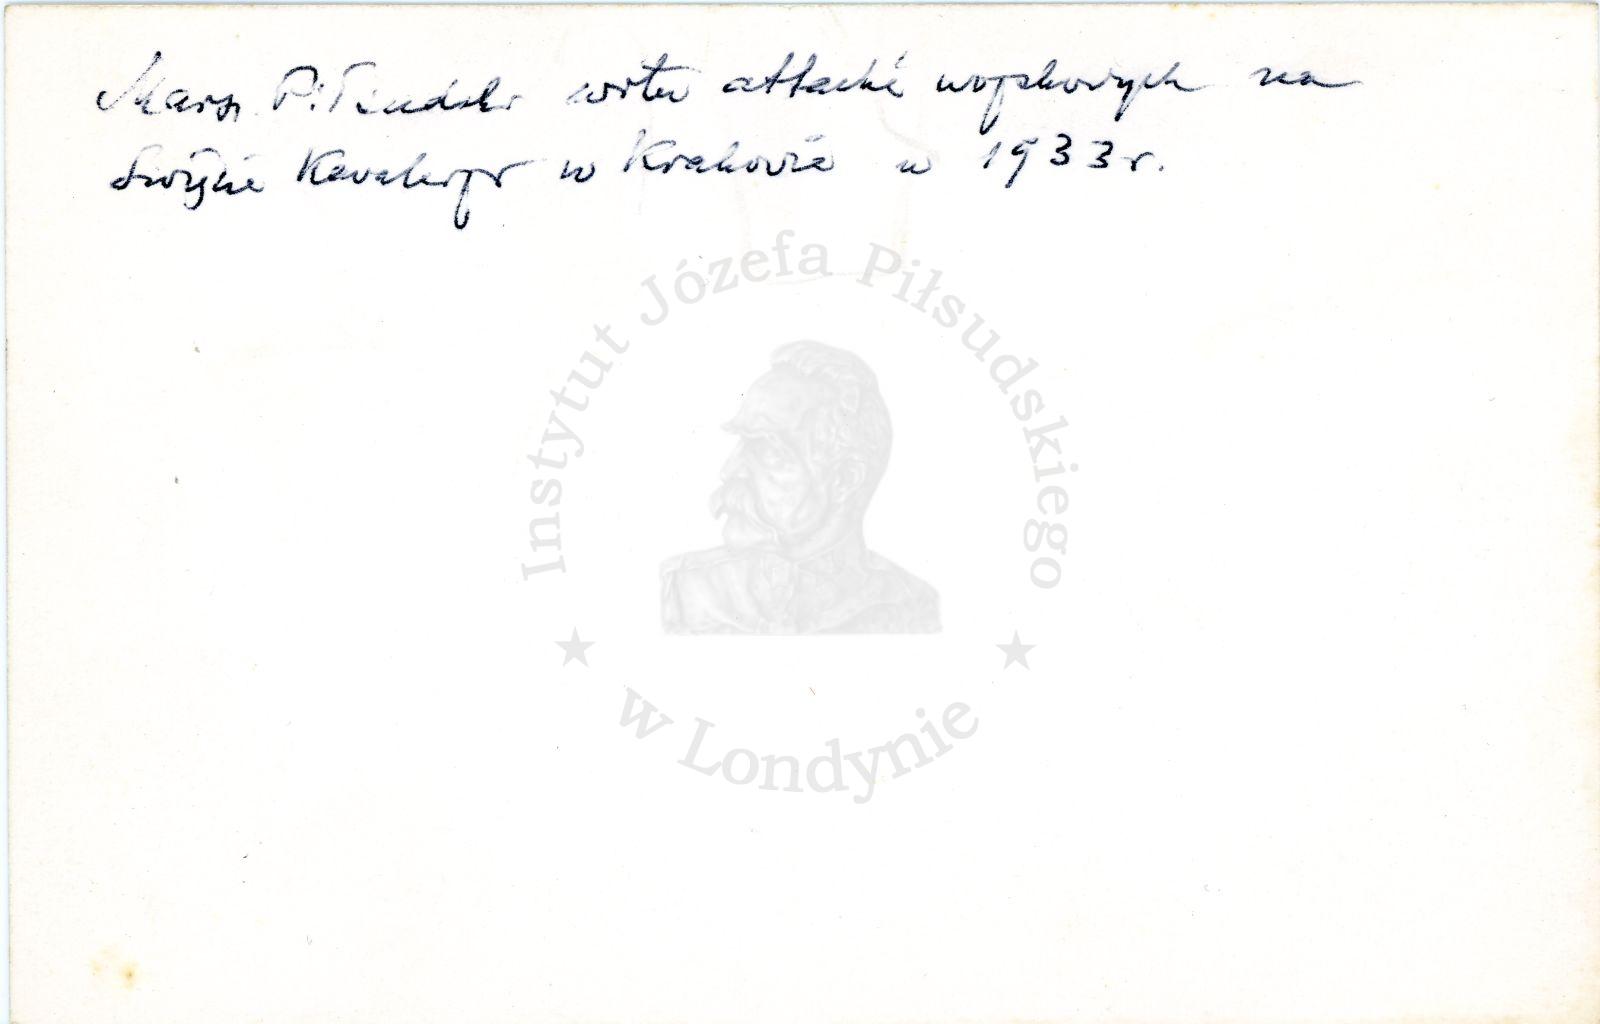 Marsz. Piłsudski wita attaché wojskowych na
Święcie Kawalerji w Krakowie w 1933 r.
Instytut Józefa Piłsudskiego
w Londynie